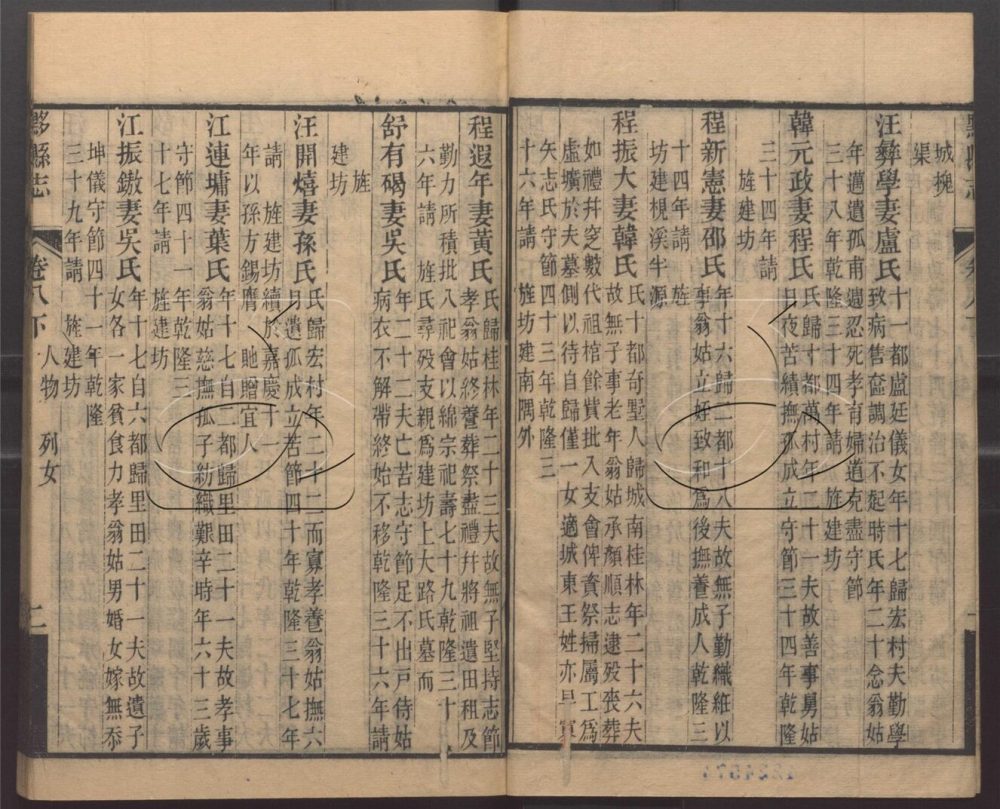 城槐
渠
汪彝學妻盧氏十一都盧廷儀女年十七歸宏村夫勤學
致病售奩謁治不起時氏年二十念翁姑
年邁遺孤甫遺忍死孝育婦道克盡守節
三十八年乾隆三十四年請 旌建坊
韓元政妻程氏氏歸十都萬村年二十一夫故善事舅姑
日夜苦績撫孤成立守節三十四年乾隆
三十四年請
旌建坊
程新憲妻邵氏年十六歸二都十八夫故無子勤織維以
事翁姑立姪致和為後撫養成人乾隆三
十四年請 旌
坊建梘溪半源
程振大妻韓氏氏十都奇墅人歸城南桂林年二十六夫
故無子事老年翁姑承顏順志逮歿喪葬
如禮幷窆數代祖棺餘貲批入支會俾資祭掃屬工爲
虛壙於夫墓側以待自歸僅一女適城東王姓亦早寡
矢志氏守節四十三年乾隆三
十六年請 旌坊建南隅外
程遐年妻黃氏氏歸桂林年二十三夫故無子堅持志節
孝翁姑終養葬祭盡禮幷將祖遺田租及
勤力所積批入祀會以綿宗祀壽七十九乾隆三十
六年請 旌氏尋歿支親爲建坊上大路氏墓而
舒有碣妻吳氏年二十二夫亡苦志守節足不出戶侍姑
病衣不解帶終始不移乾隆三十六年請
旌
建坊
汪開熺妻孫氏氏歸宏村年二十二而寡孝養翁姑撫六
月遺孤成立苦節四十年乾隆三十七年
請 旌建坊續於嘉慶十一
年以孫方錫膺 貤贈宜人
江連墉妻葉氏年十七自二都歸里田二十一夫故孝事
翁姑慈撫孤子紡織艱辛時年六十三歲
守節四十一年乾隆三
十七年請 旌建坊
江振鏾妻吳氏年十七自六都歸里田二十一夫故遺子
女各一家貧食力孝翁姑男婚女嫁無忝
坤儀守節四十一年乾隆
三十九年請 旌建坊
黟縣志 卷八下 人物 列女 二